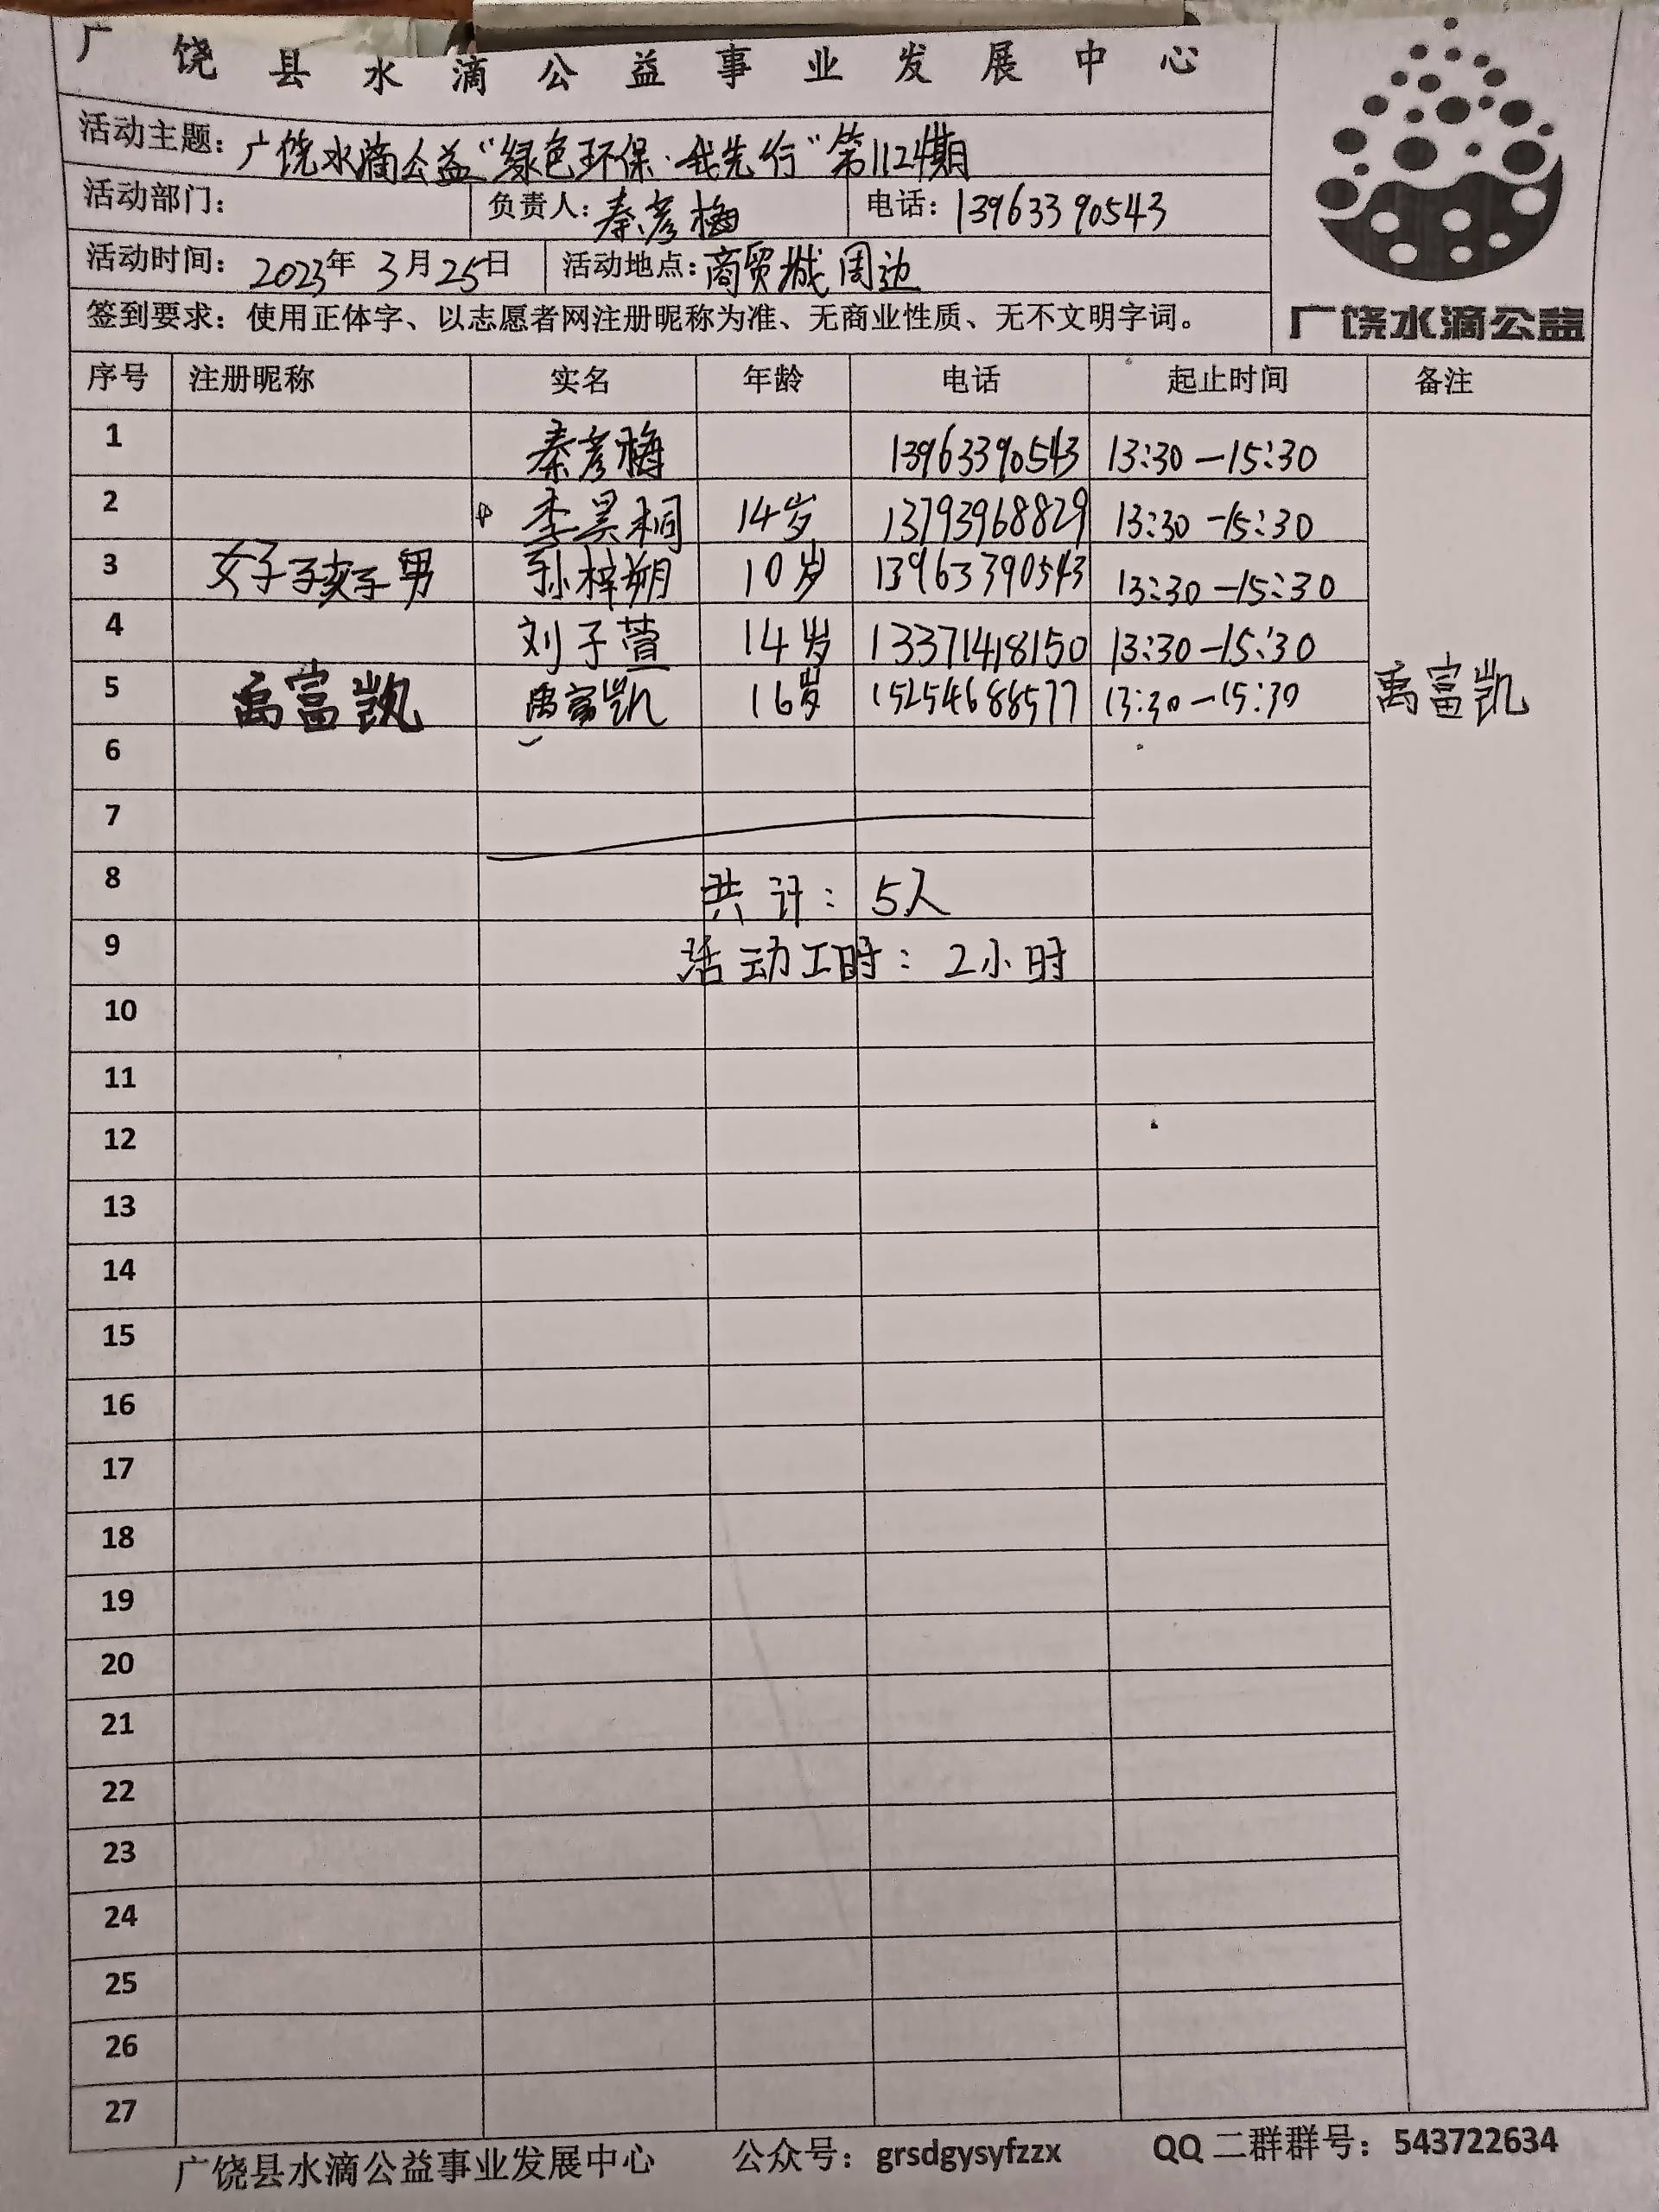 广饶县水滴公益事业发展中心
活动主题：广饶水滴公益“绿色环保·我先行”第1124期
活动部门： 负责人：秦彦梅 电话：13963390543
活动时间：2023年3月25日 活动地点：商贸城周边
签到要求：使用正体字、以志愿者网注册昵称为准、无商业性质、无不文明字词。
广饶水滴公益
序号 注册昵称 实名 年龄 电话 起止时间 备注
1 秦彦梅 13963390543 13:30-15:30
2 李昊桐 14岁 13793968829 13:30-15:30
3 孙梓朔 10岁 13963390543 13:30-15:30
4 刘子萱 14岁 13371418150 13:30-15:30
5 禹富凯 禹富凯 16岁 15254688577 13:30-15:30 禹富凯
6
7
8 共计：5人
9 活动工时：2小时
10
11
12
13
14
15
16
17
18
19
20
21
22
23
24
25
26
27
广饶县水滴公益事业发展中心 公众号：grsdgysyfzzx QQ二群群号：543722634